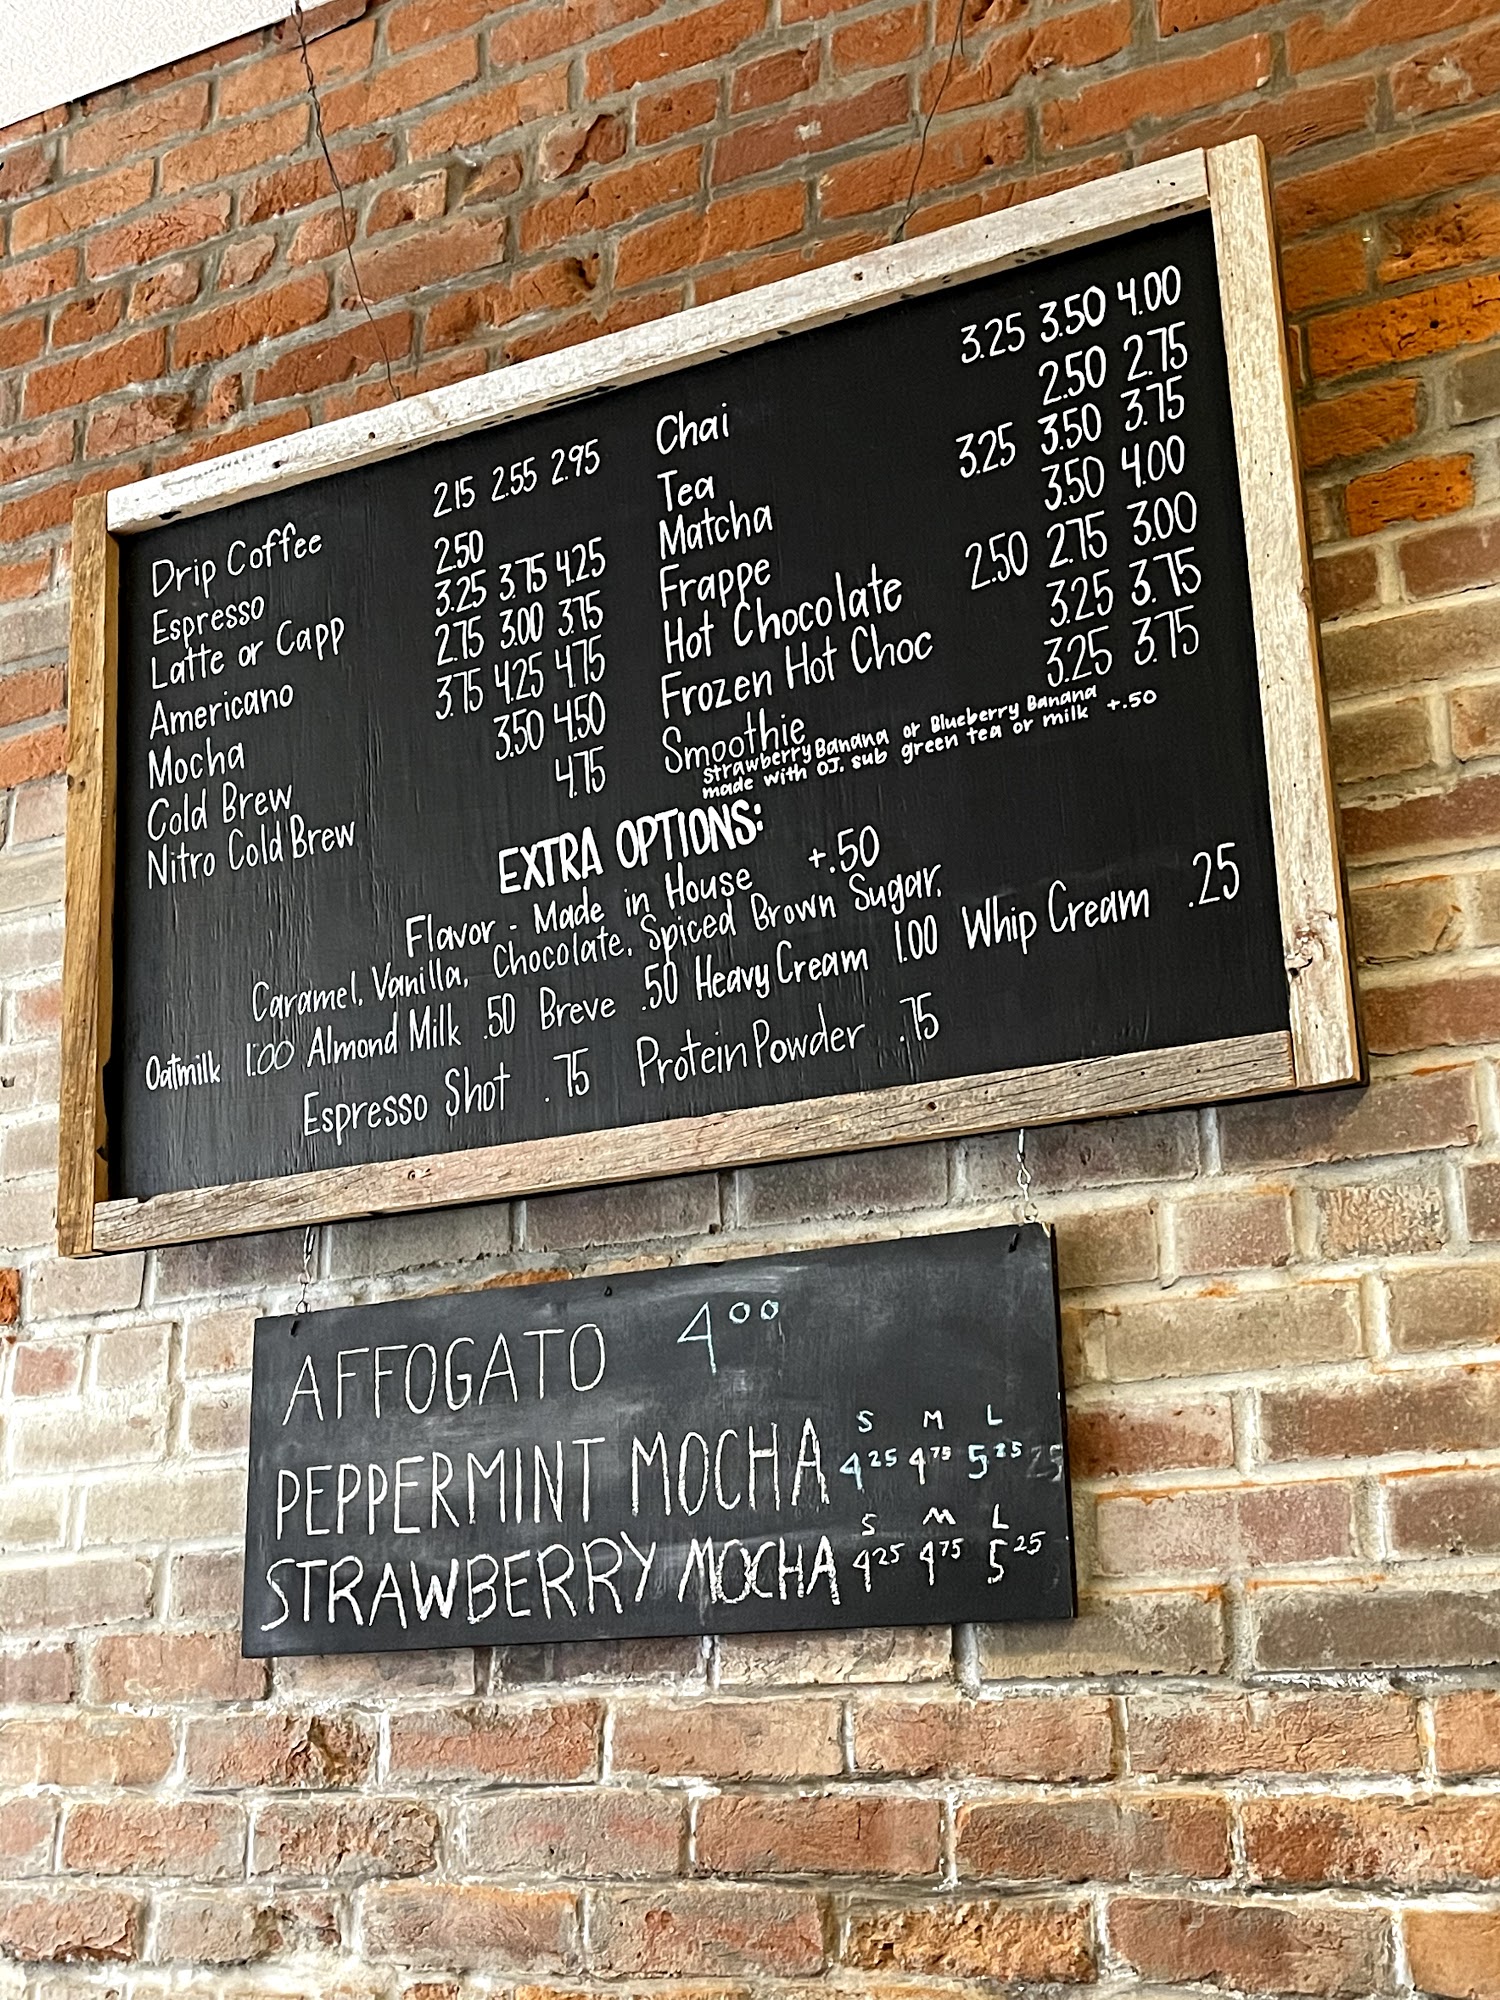 Drip Coffee 2.15 2.55 2.95
Espresso 2.50
Latte or Capp 3.25 3.75 4.25
Americano 2.75 3.00 3.75
Mocha 3.75 4.25 4.75
Cold Brew 3.50 4.50
Nitro Cold Brew 4.75
Chai 3.25 3.50 4.00
Tea 2.50 2.75
Matcha 3.25 3.50 3.75
Frappe 3.50 4.00
Hot Chocolate 2.50 2.75 3.00
Frozen Hot Choc 3.25 3.75
Smoothie 3.25 3.75
Strawberry Banana or Blueberry Banana
made with OJ, sub green tea or milk +.50
EXTRA OPTIONS:
Flavor - Made in House +.50
Caramel, Vanilla, Chocolate, Spiced Brown Sugar,
Oatmilk 1.00 Almond Milk .50 Breve .50 Heavy Cream 1.00 Whip Cream .25
Espresso Shot .75 Protein Powder .75
AFFOGATO 4.00
S M L
PEPPERMINT MOCHA 4 25 4 75 5 25 25
S M L
STRAWBERRY MOCHA 4 25 4 75 5 25